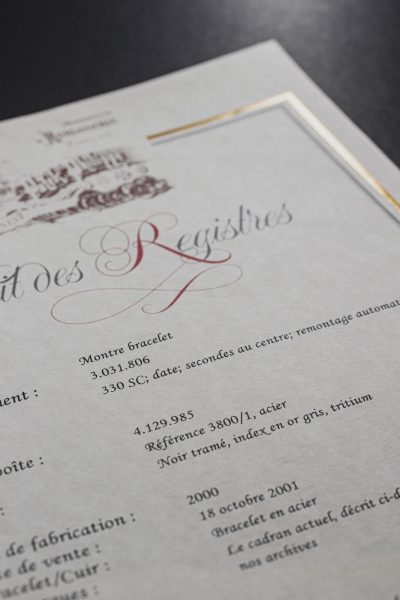 it des Registres
Montre bracelet
3.031.806
ent : 330 SC; date; secondes au centre; remontage automat
4.129.985
oîte : Référence 3800/1, acier
Noir tramé, index en or gris, tritium
:
de fabrication : 2000
e de vente : 18 octobre 2001
acelet/Cuir : Bracelet en acier
ques : Le cadran actuel, décrit ci-d
nos archives